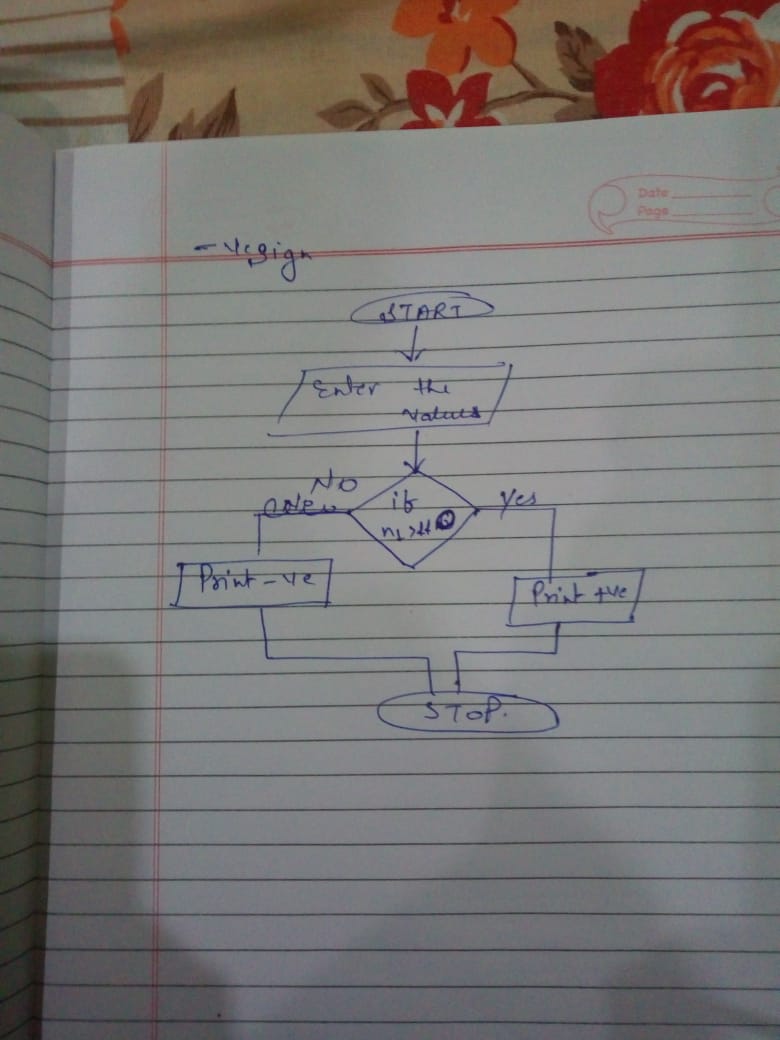 Date
Page
-ve sign
START
Enter the
values
No
Yes
if
Print -ve
Print +ve
STOP.